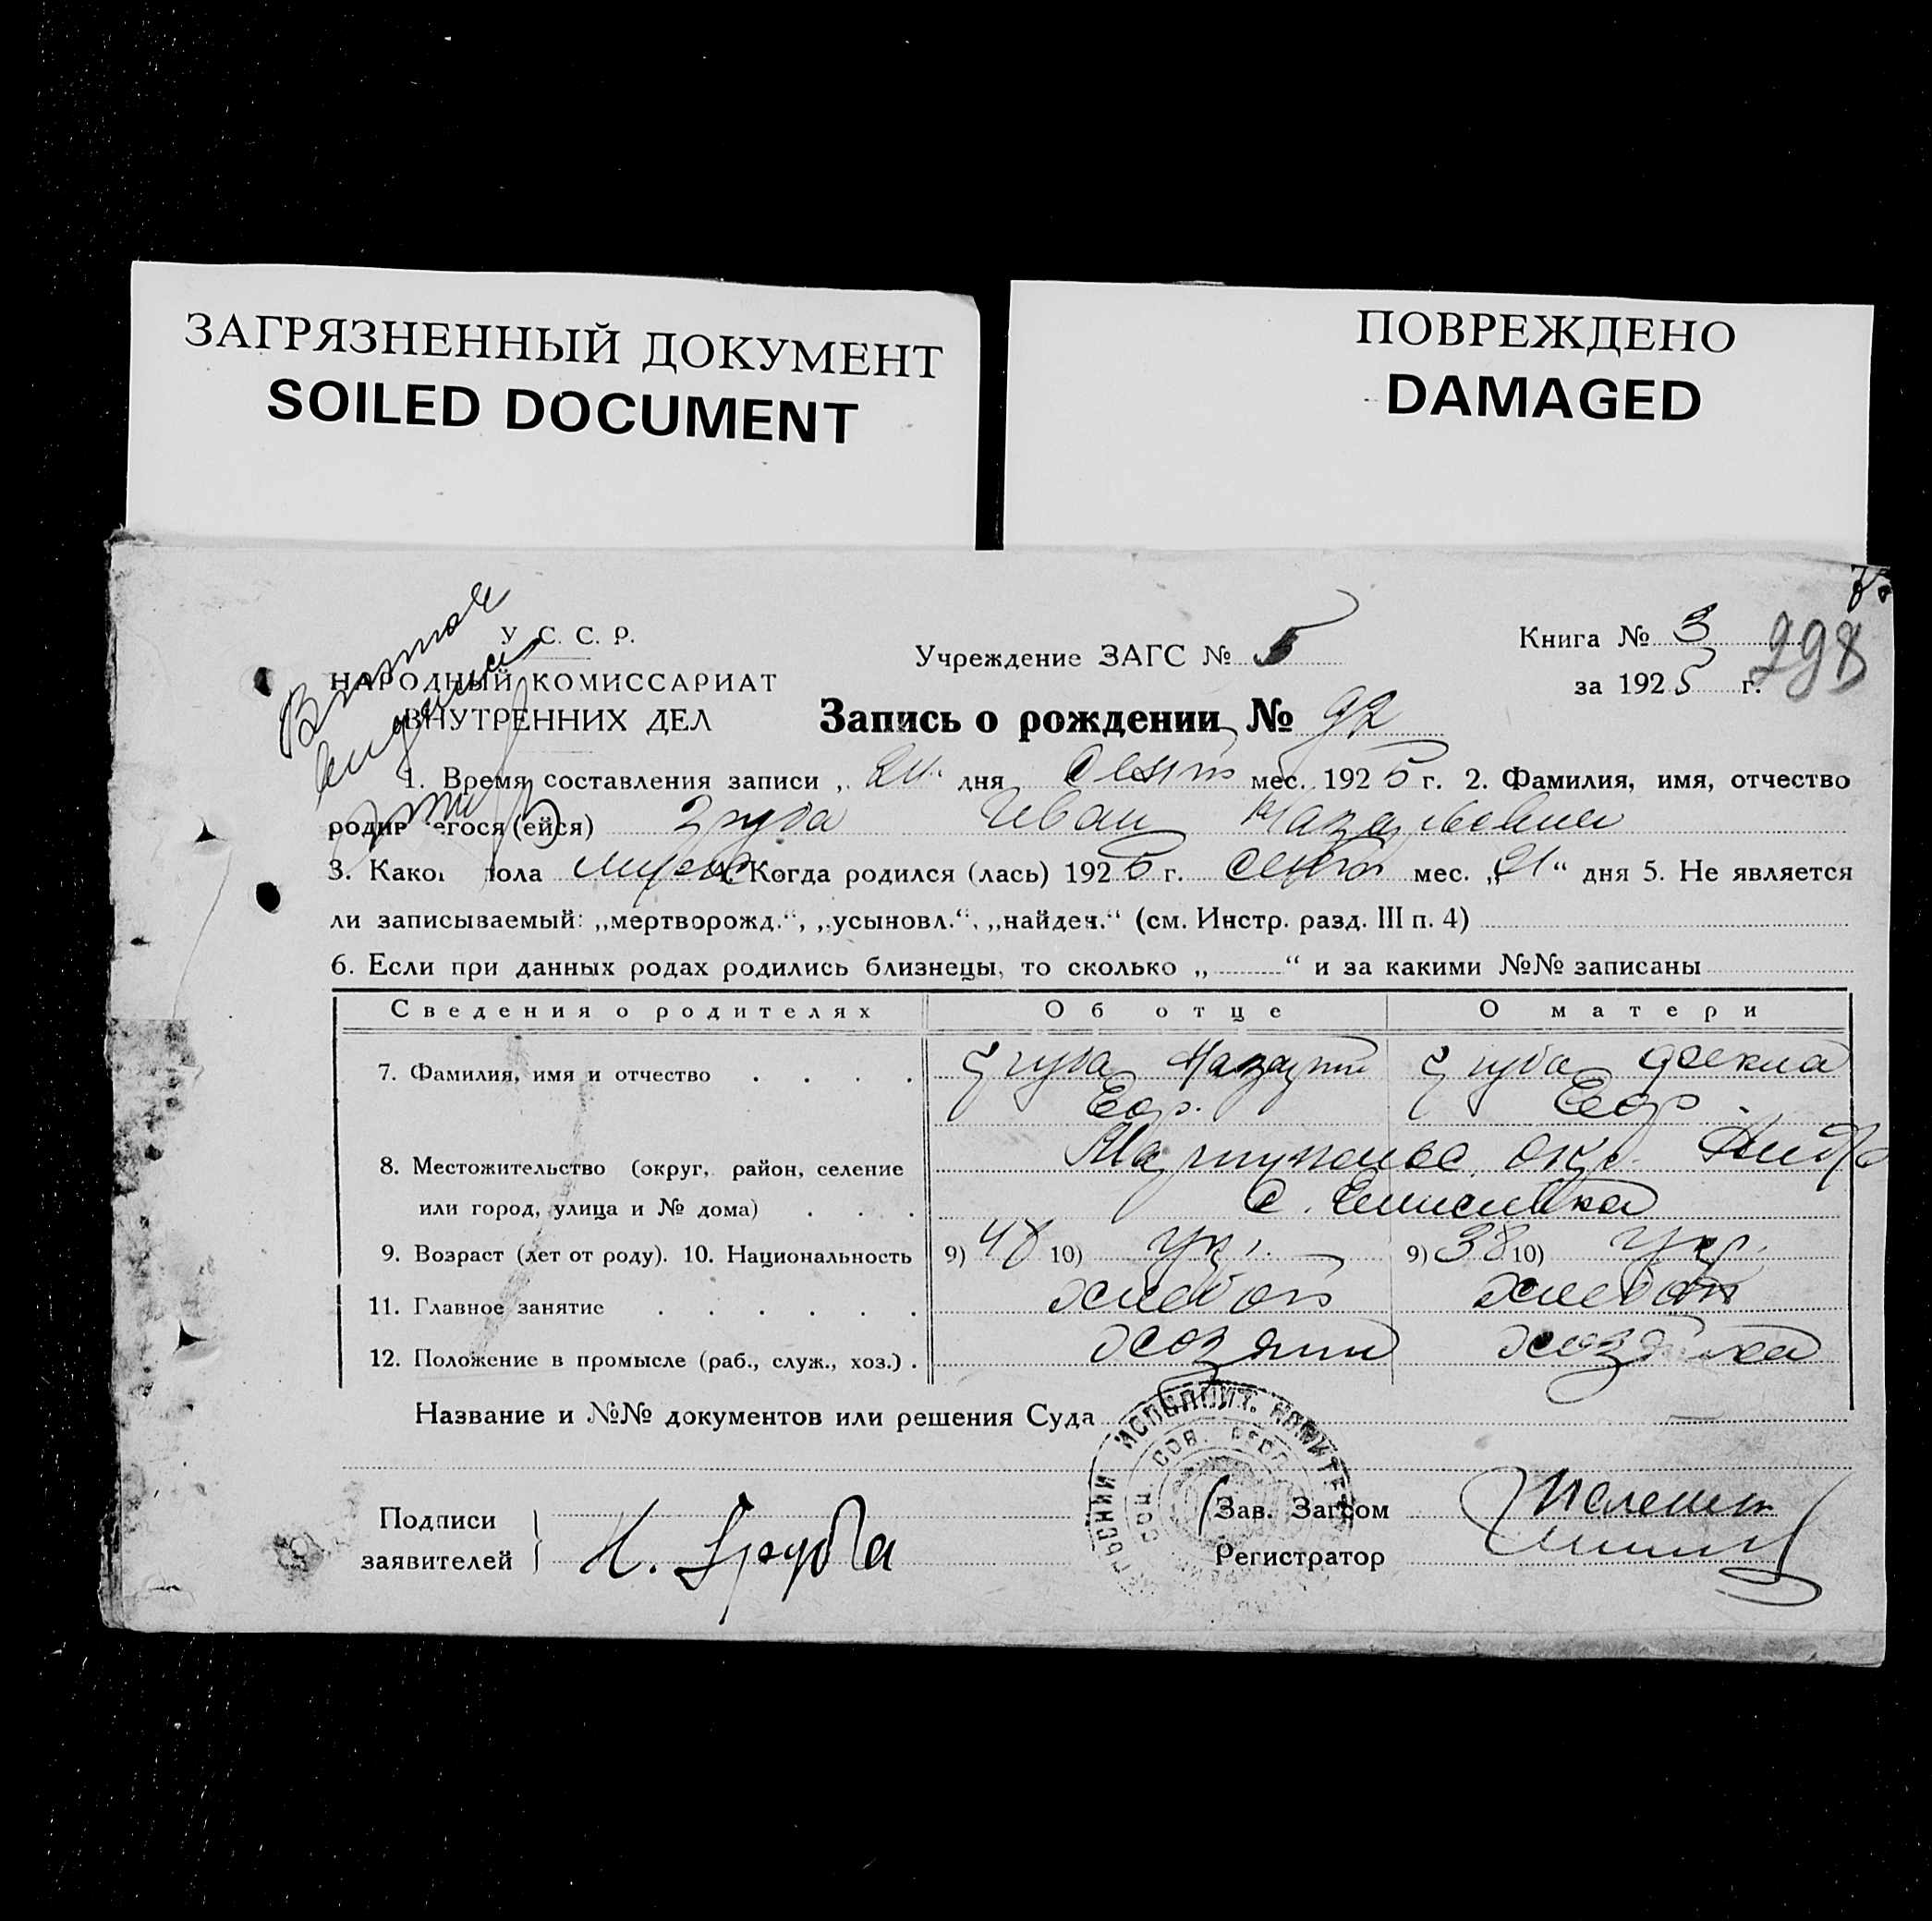 ЗАГРЯЗНЕННЫЙ ДОКУМЕНТ
SOILED DOCUMENT
ПОВРЕЖДЕНО
DAMAGED
У. С. С. Р.
НАРОДНЫЙ КОМИССАРИАТ
ВНУТРЕННИХ ДЕЛ
Учреждение ЗАГС № 5
Книга № 3
за 1925 г.
298
Запись о рождении № 92
1. Время составления записи „ дня Сент мес. 1925 г. 2. Фамилия, имя, отчество
родив егося (ейся) Груба Иван Назарович
3. Каког пола мужс 4. Когда родился (лась) 1925 г. Сент мес. „21“ дня 5. Не является
ли записываемый: „мертворожд.“, „усыновл.“, „найден.“ (см. Инстр. разд. III п. 4)
6. Если при данных родах родились близнецы, то сколько „ “ и за какими №№ записаны
Сведения о родителях Об отце О матери
7. Фамилия, имя и отчество Груба Назарий Груба Фекла
Еф. Еф.
8. Местожительство (округ, район, селение Мариупольс. окр.
или город, улица и № дома) С.
9. Возраст (лет от роду). 10. Национальность 9) 48 10) Укр. 9) 38 10) Укр.
11. Главное занятие хлебоп хлебоп
12. Положение в промысле (раб., служ., хоз.) хозяин хозяйка
Название и №№ документов или решения Суда
ИСПОЛНИТ. КОМИТЕТ
Подписи
заявителей
Н. Груба
Зав. Загсом
Регистратор